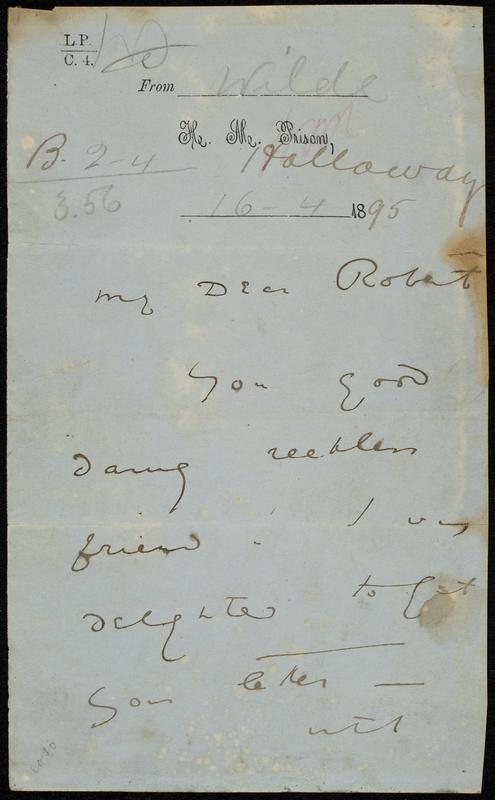 L.P.
C. 4.
From Wilde
H. M. Prison,
B. 2-4 Holloway
3.56
16-4 1895
My Dear Robert
You good
daring reckless
friend! I was
delighted to get
your letter —
with